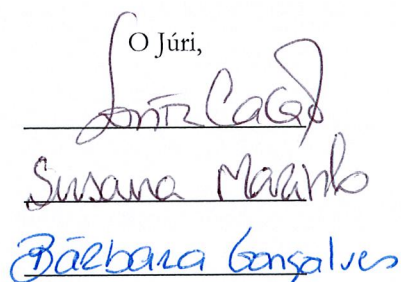 O Júri,
Susana Marinho
Bárbara Gonçalves